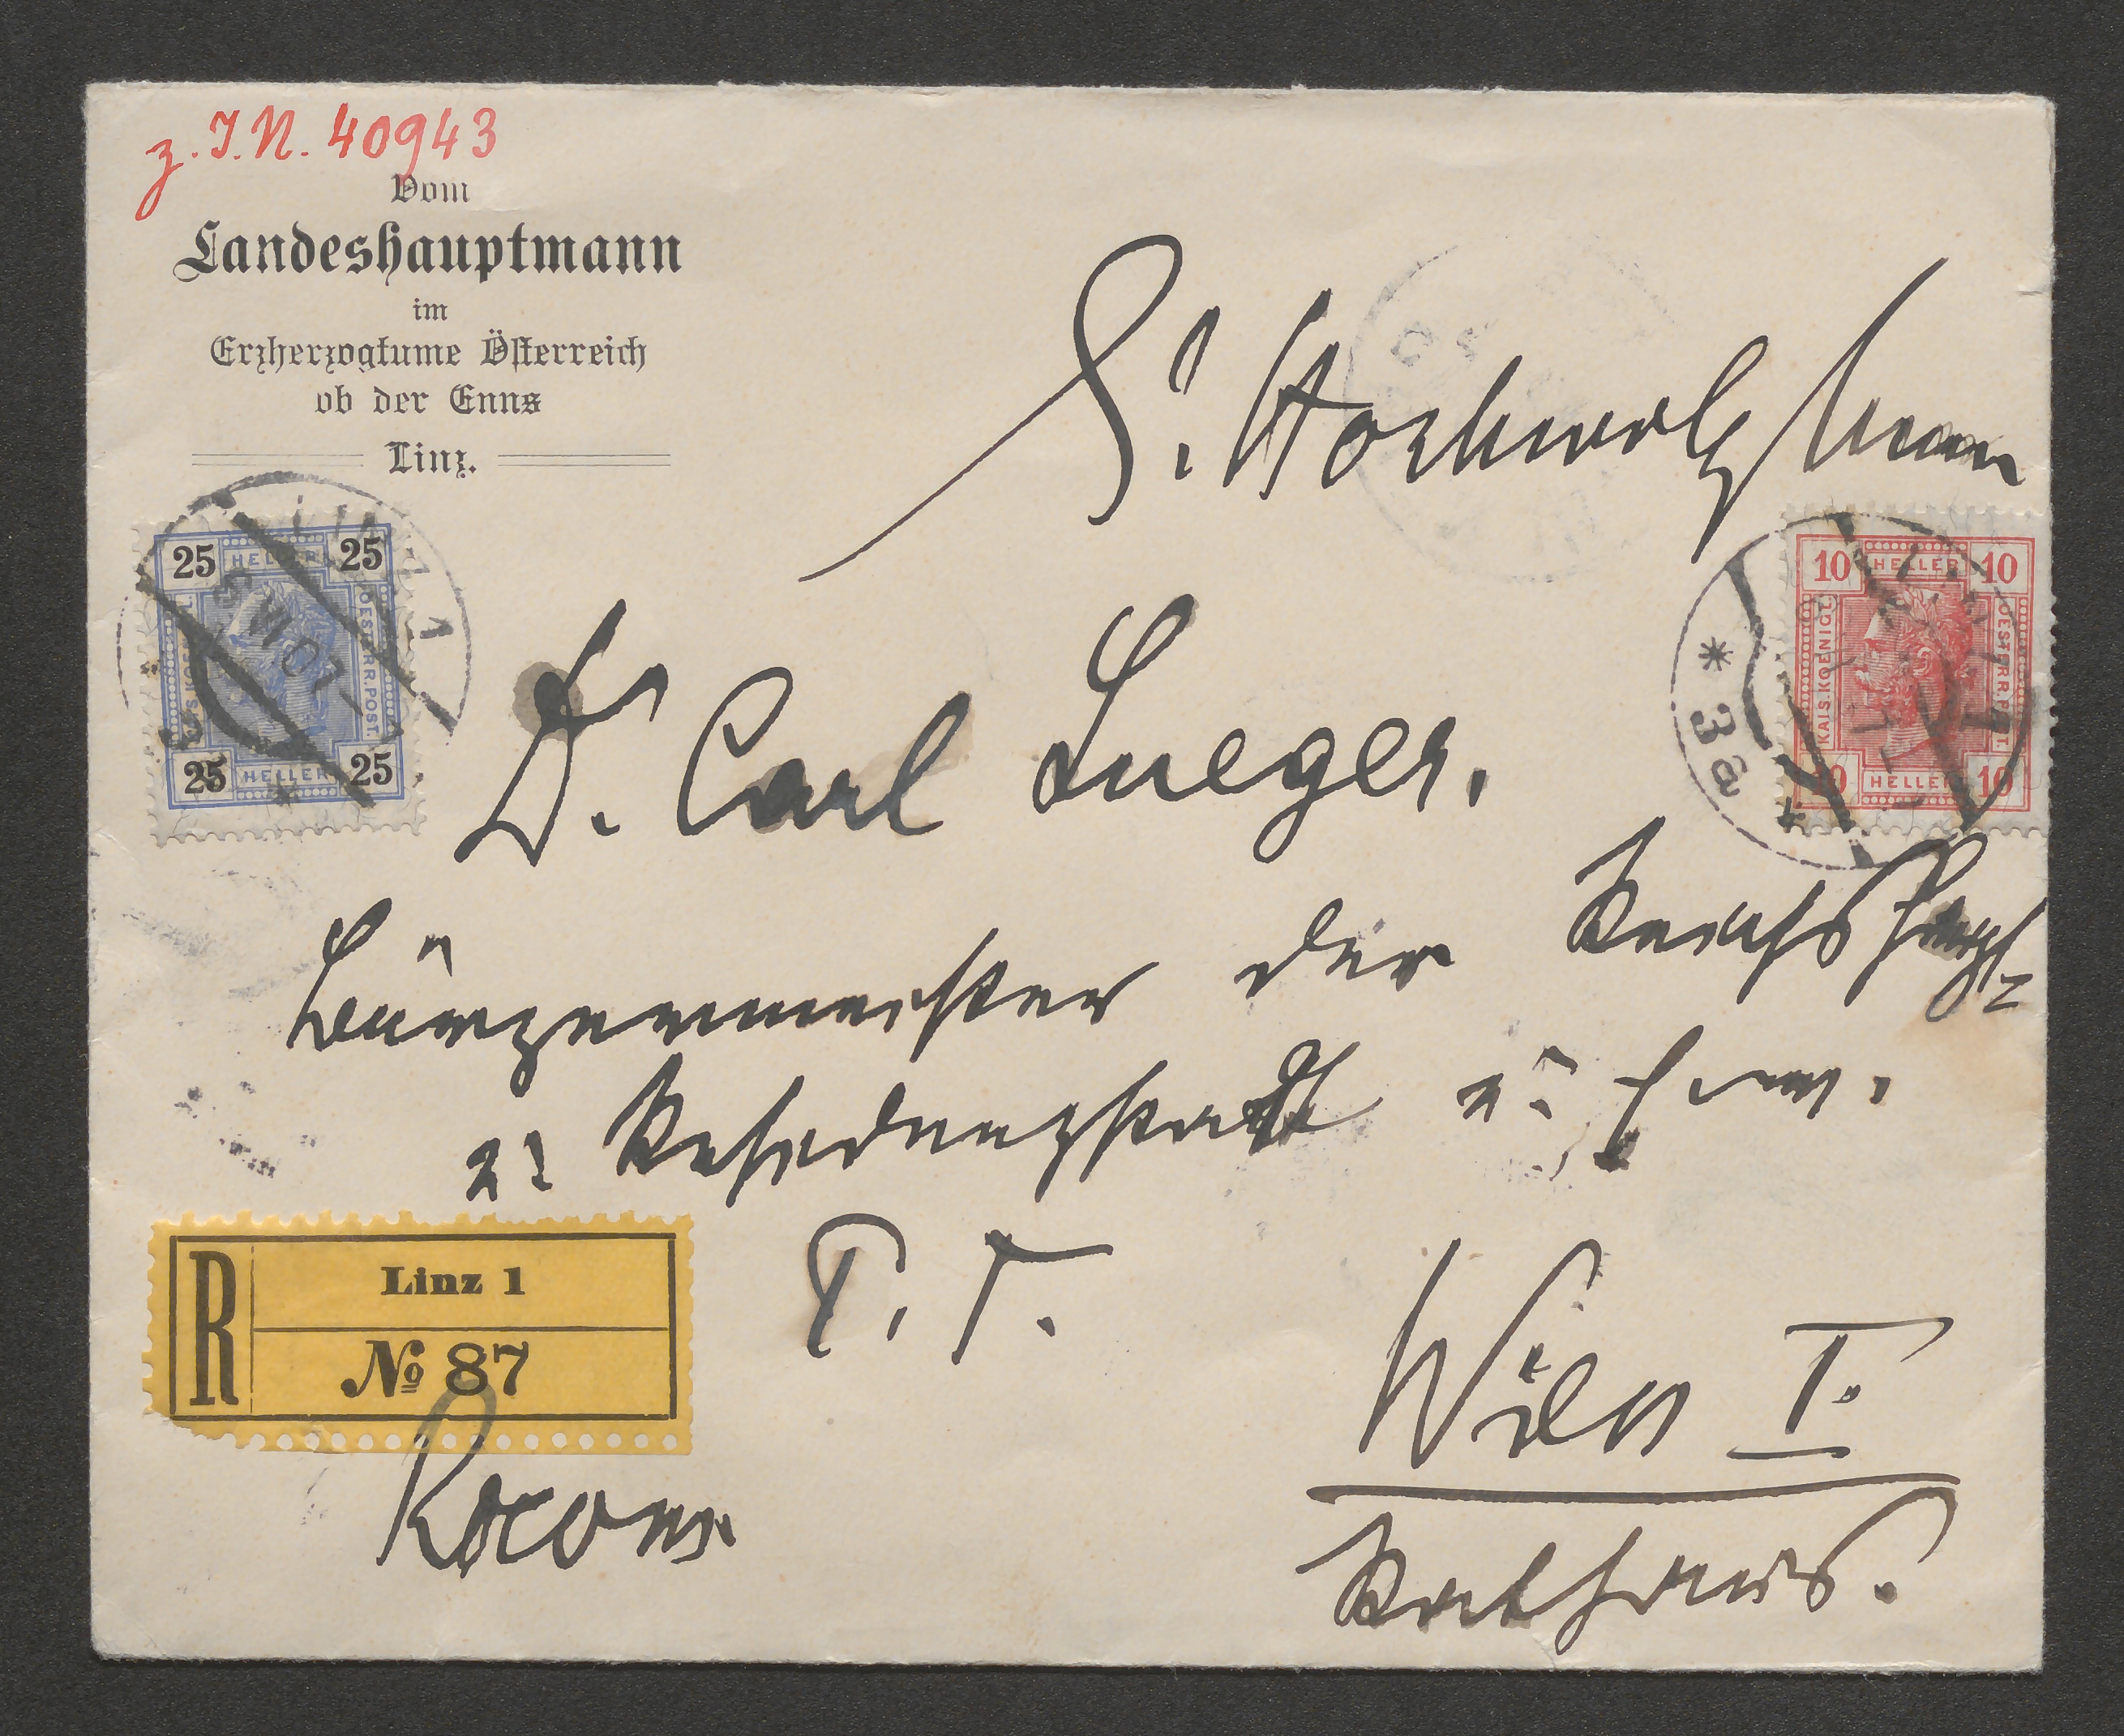 z. I. N. 40943
Vom
Landeshauptmann
im
Erzherzogtume Österreich
ob der Enns
Linz.
S. Hochwolg
25 HELLER 25
KAIS. KOENIGL.
OESTERR. POST.
25 HELLER 25
LINZ 1
10 HELLER 10
KAIS. KOENIGL.
OESTERR. POST.
10 HELLER 10
* 3a *
Dr. Carl Lueger.
Bürgermeister der Reichshaupt-
u. Residenzstadt u.
P. T.
R
Linz 1
№ 87
Wien I.
Rekom.
Rathaus.